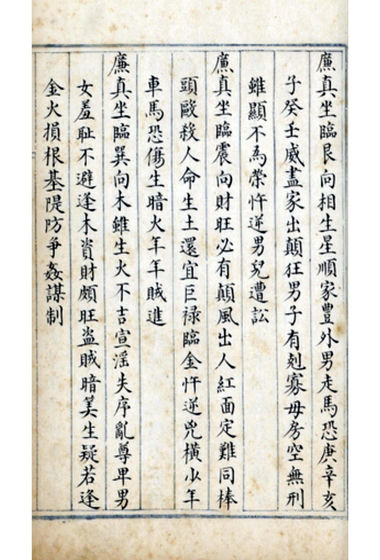 廉真坐臨艮向相生星順家豊外男走馬恐庚辛亥
子癸壬威盡家出顛狂男子有剋寡母房空無刑
雖顯不為榮忤逆男兒遭訟
廉真坐臨震向財旺必有顛風出人紅面定難同棒
頭毆殺人命生土還宜巨禄臨金忤逆兇横少年
車馬恐傷生暗火年年賊進
廉真坐臨巽向木雖生火不吉宣滛失序亂尊卑男
女羞耻不避逢木資財頗旺盗賊暗美生疑若逢
金火損根基隄防争姦謀制